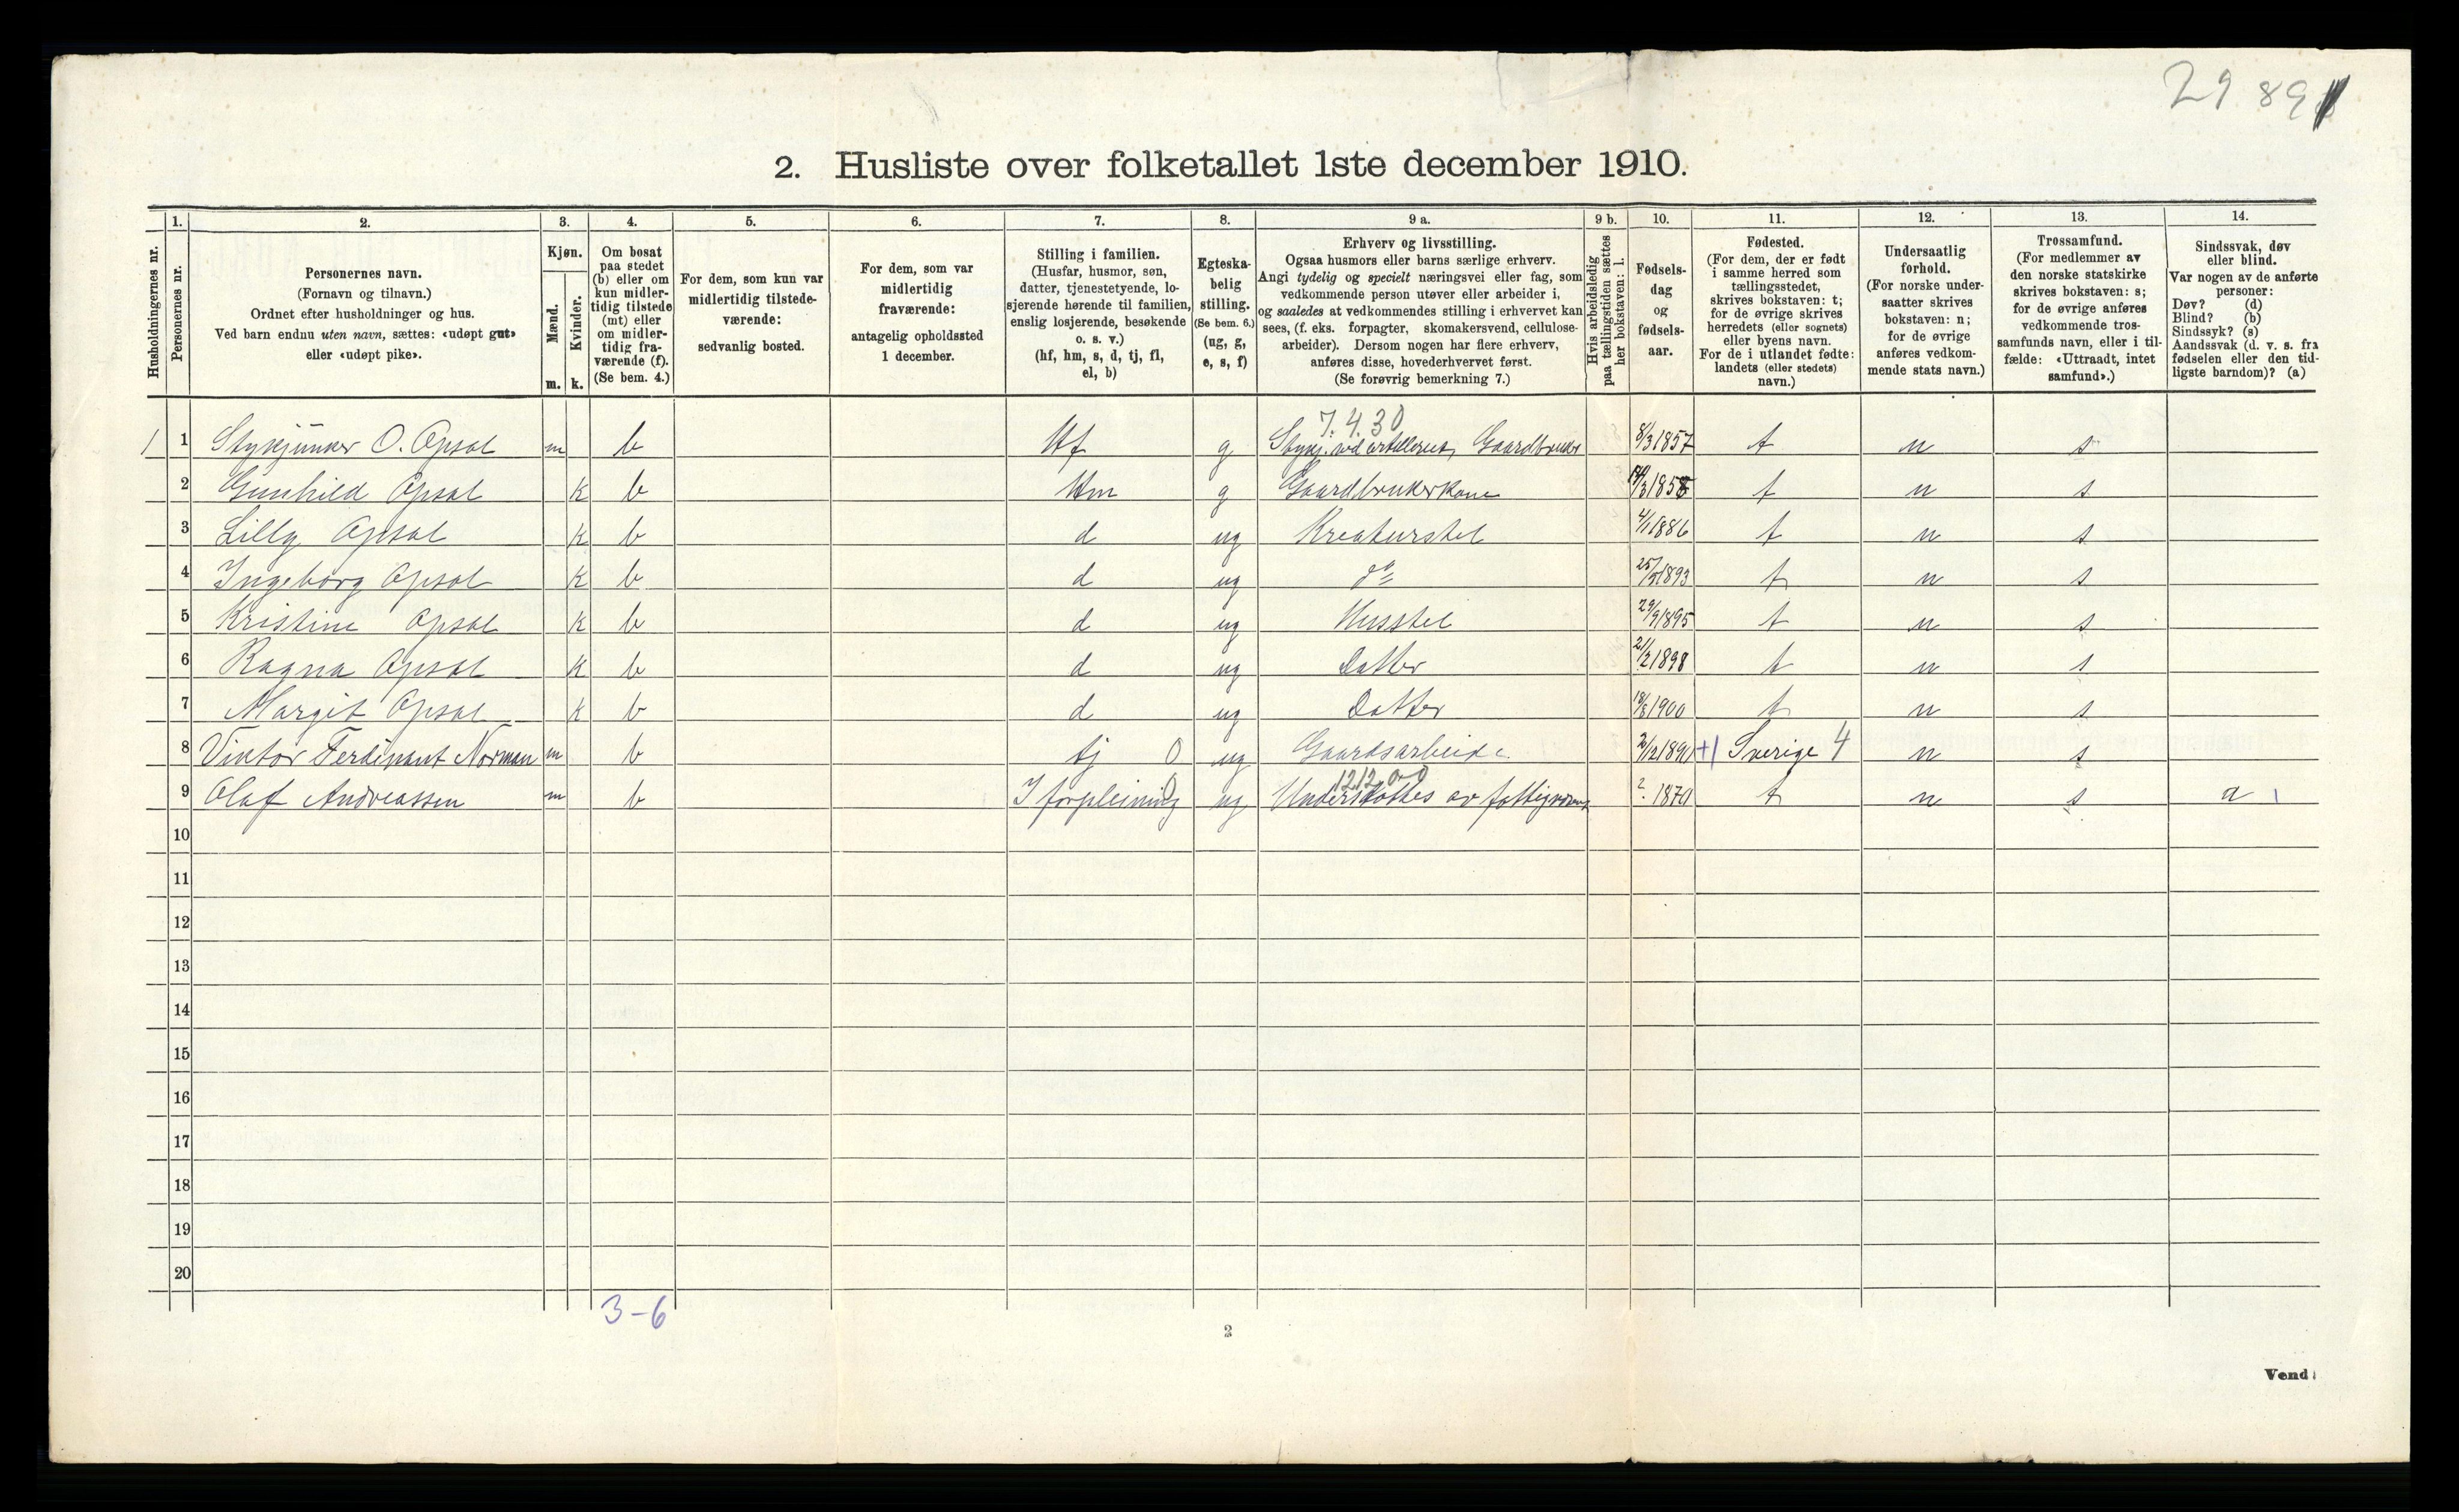 29 89
2. Husliste over folketallet 1ste december 1910.
1. 2. 3. 4. 5. 6. 7. 8. 9 a. 9 b. 10. 11. 12. 13. 14.
Husholdningernes nr.
Personernes nr.
Personernes navn.
(Fornavn og tilnavn.)
Ordnet efter husholdninger og hus.
Ved barn endnu uten navn, sættes: «udøpt gut»
eller «udøpt pike».
Kjøn.
Mænd.
Kvinder.
m. k.
Om bosat
paa stedet
(b) eller om
kun midler-
tidig tilstede
(mt) eller
om midler-
tidig fra-
værende (f).
(Se bem. 4.)
For dem, som kun var
midlertidig tilstede-
værende:
sedvanlig bosted.
For dem, som var
midlertidig
fraværende:
antagelig opholdssted
1 december.
Stilling i familien.
(Husfar, husmor, søn,
datter, tjenestetyende, lo-
sjerende hørende til familien,
enslig losjerende, besøkende
o. s. v.)
(hf, hm, s, d, tj, fl,
el, b)
Egteska-
belig
stilling.
(Se bem. 6.)
(ug, g,
e, s, f)
Erhverv og livsstilling.
Ogsaa husmors eller barns særlige erhverv.
Angi tydelig og specielt næringsvei eller fag, som
vedkommende person utøver eller arbeider i,
og saaledes at vedkommendes stilling i erhvervet kan
sees, (f. eks. forpagter, skomakersvend, cellulose-
arbeider). Dersom nogen har flere erhverv,
anføres disse, hovederhvervet først.
(Se forøvrig bemerkning 7.)
Hvis arbeidsledig
paa tællingstiden sættes
her bokstaven: l.
Fødsels-
dag
og
fødsels-
aar.
Fødested.
(For dem, der er født
i samme herred som
tællingsstedet,
skrives bokstaven: t;
for de øvrige skrives
herredets (eller sognets)
eller byens navn.
For de i utlandet fødte:
landets (eller stedets)
navn.)
Undersaatlig
forhold.
(For norske under-
saatter skrives
bokstaven: n;
for de øvrige
anføres vedkom-
mende stats navn.)
Trossamfund.
(For medlemmer av
den norske statskirke
skrives bokstaven: s;
for de øvrige anføres
vedkommende tros-
samfunds navn, eller i til-
fælde: «Uttraadt, intet
samfund».)
Sindssvak, døv
eller blind.
Var nogen av de anførte
personer:
Døv? (d)
Blind? (b)
Sindssyk? (s)
Aandssvak (d. v. s. fra
fødselen eller den tid-
ligste barndom)? (a)
7.4.30
1 1 Stykjunker O. Opsal m b Hf g Stykj. ved artilleriet, Gaardbruker 8/3 1857 t n s
2 Gunhild Opsal k b Hm g Gaardbrukerkone t n s
3 Lilly Opsal k b d ug Kreaturstel 4/1 1886 t n s
4 Ingeborg Opsal k b d ug do 1893 t n s
5 Kristine Opsal k b d ug Husstel 29/9 1895 t n s
6 Ragna Opsal k b d ug Datter 21/2 1898 t n s
7 Margit Opsal k b d ug Datter 18/8 1900 t n s
8 Viktor Ferdinant Norman m b tj 0 ug Gaardsarbeide 2/12 1890 +1 Sverige 4 n s
1212.00
9 Olaf Andreassen m b I forpleining 0 ug Understøttes av fattigvæsen ? 1870 t n s a 1
10
11
12
13
14
15
16
17
18
19
20
3-6
2
Vend!